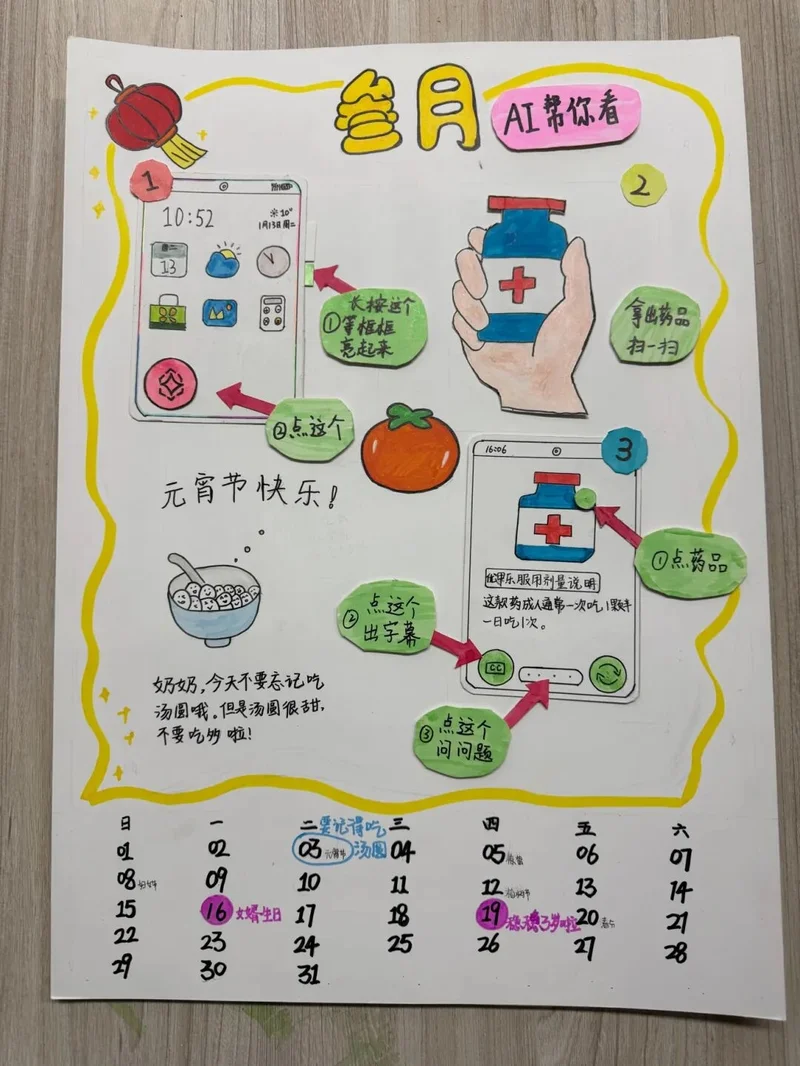 叁月
AI帮你看
1
10:52
10°
1月13日 周二
13
①长按这个
等框框
亮起来
②点这个
2
拿出药品
扫一扫
元宵节快乐！
3
16:06
①点药品
优甲乐服用剂量说明
这款药成人通常一次吃1颗半
一日吃1次。
②点这个
出字幕
CC
③点这个
问问题
奶奶，今天不要忘记吃
汤圆哦。但是汤圆很甜，
不要吃多啦！
日 一 二 三 四 五 六
要记得吃
汤圆
01 02 03 元宵节 04 05 惊蛰 06 07
08 妇女节 09 10 11 12 植树节 13 14
15 16 女婿生日 17 18 19 穗穗3岁啦 20 春分 21
22 23 24 25 26 27 28
29 30 31